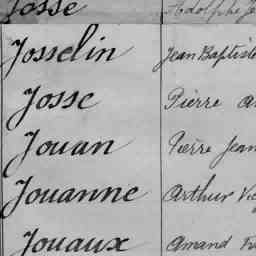 Josse Adolphe
Josselin Jean Baptiste
Josse Pierre
Jouan Pierre Jean
Jouanne Arthur
Jouaux Amand